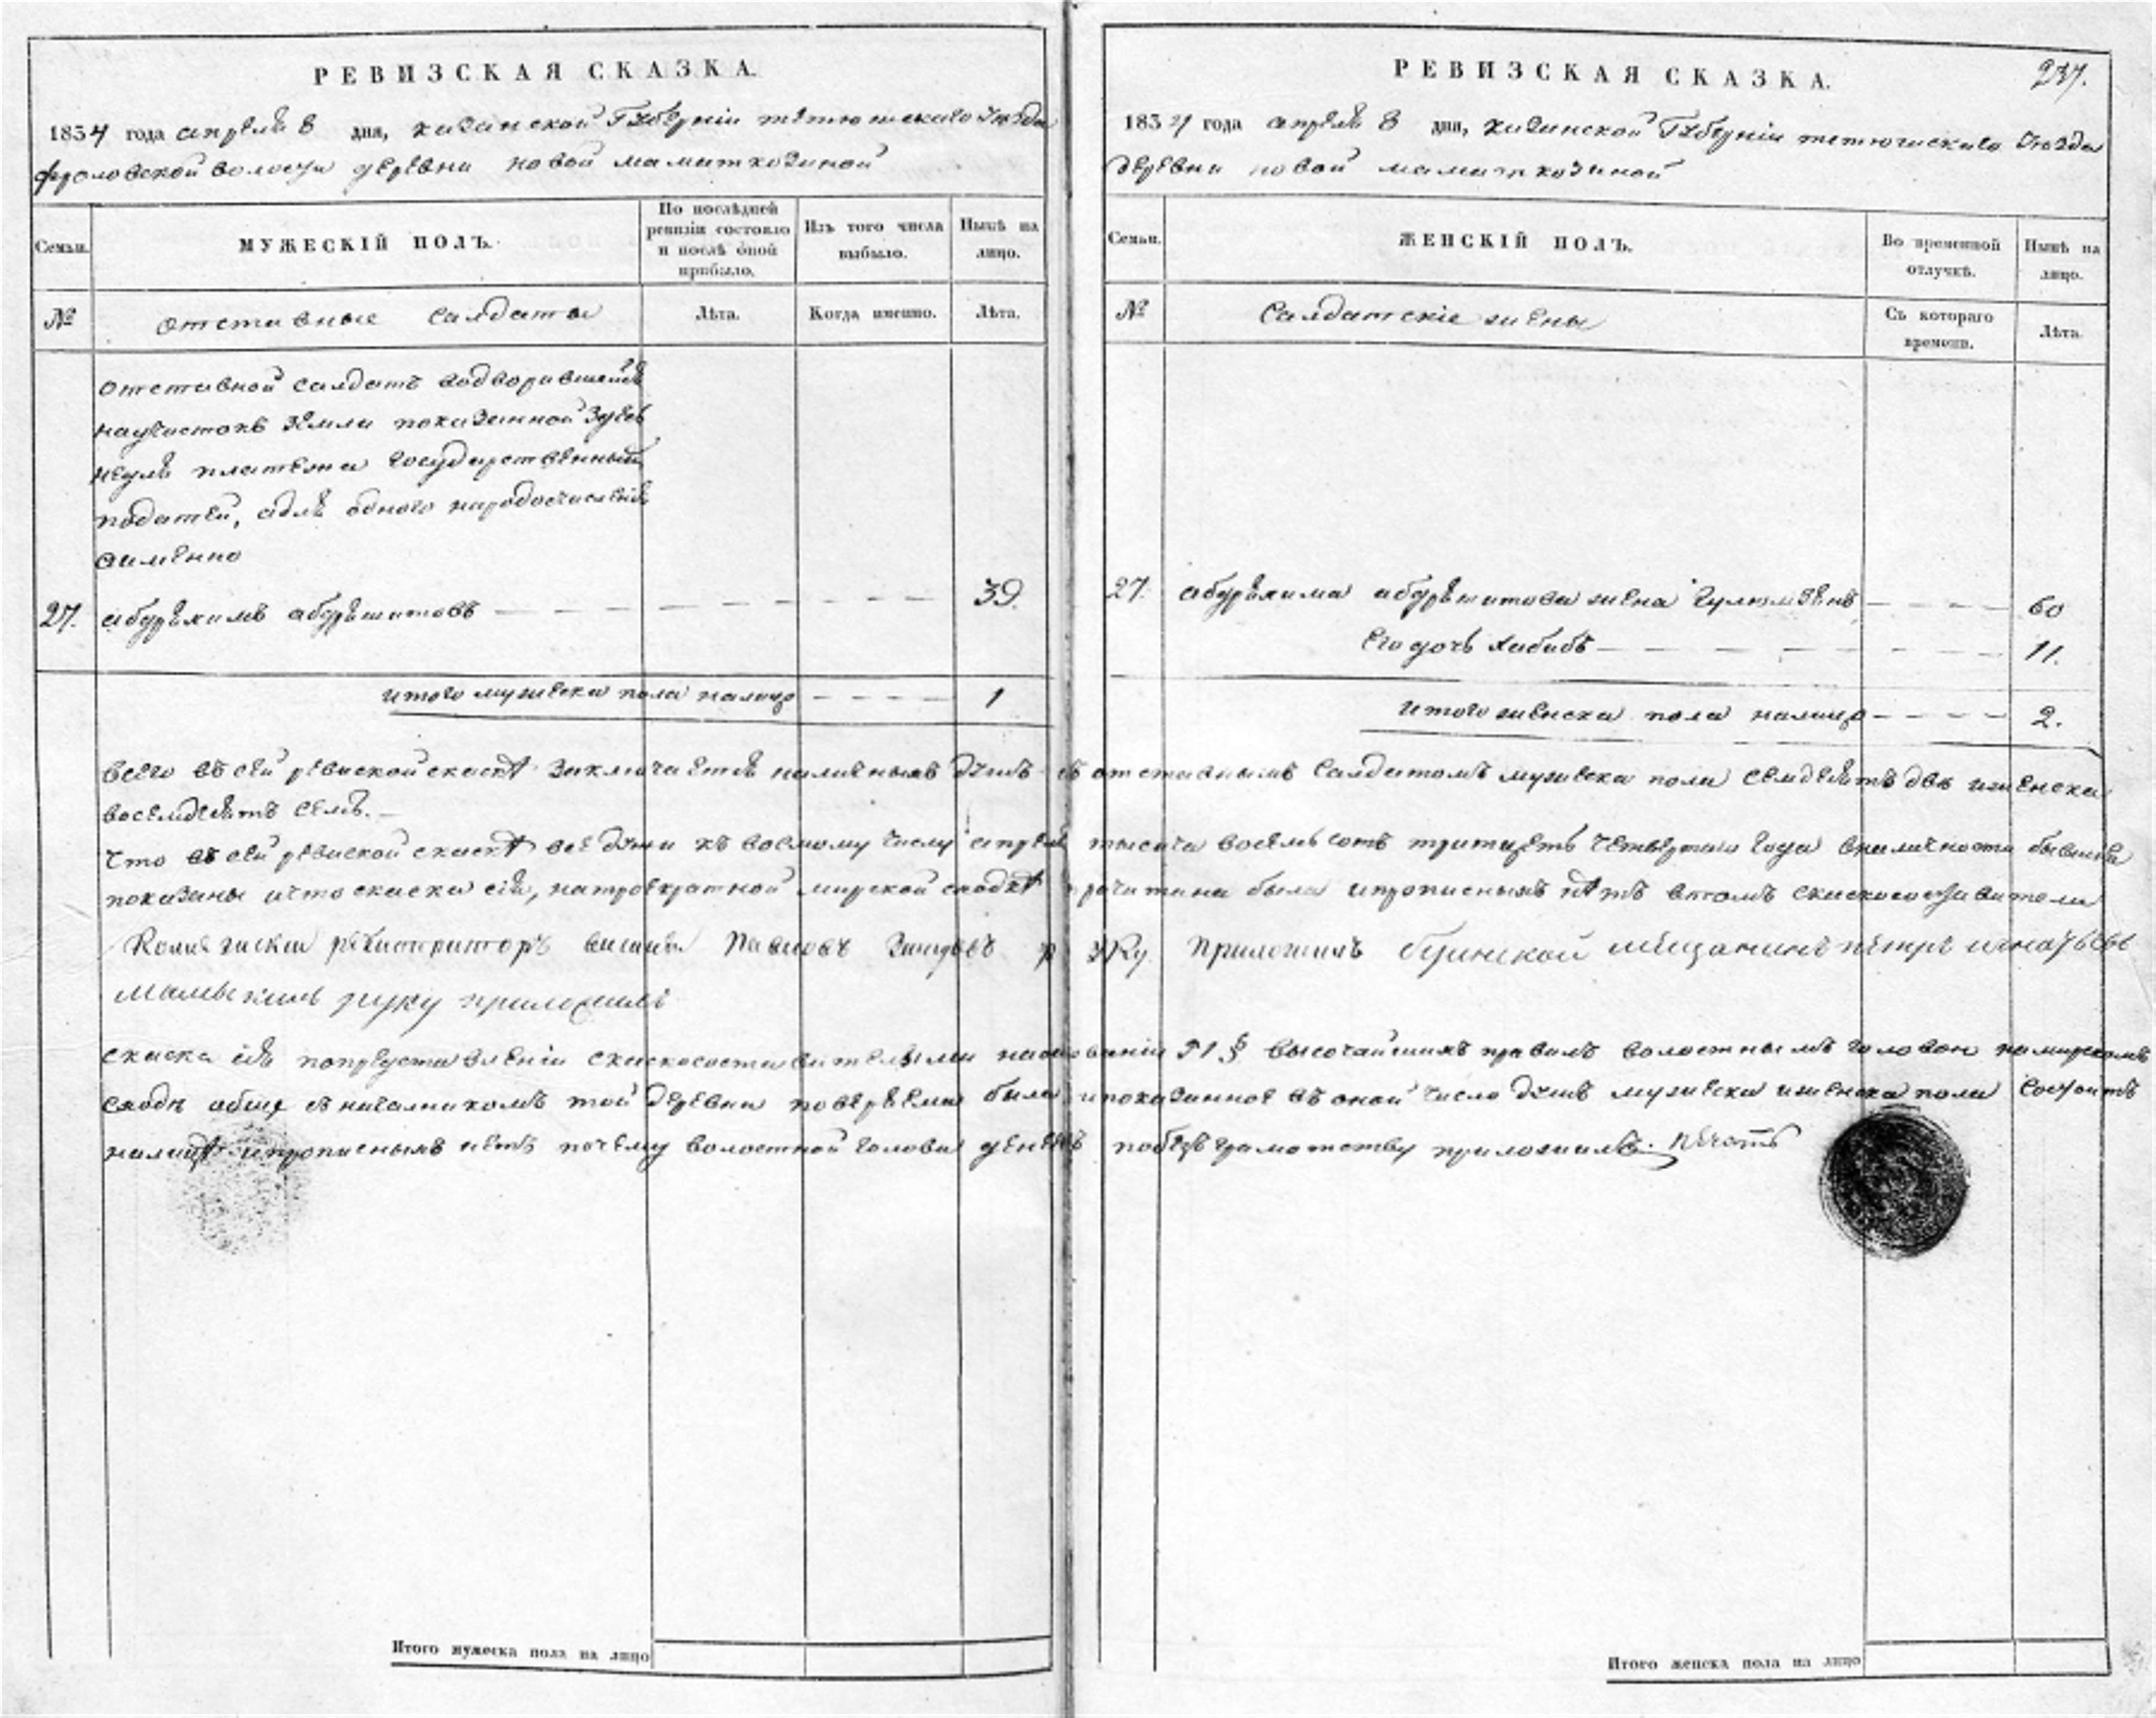 РЕВИЗСКАЯ СКАЗКА.
1834 года апреля 8 дня, казанской Губерніи тетюшскаго Уезда
фроловской волости деревни новой маматкозиной
Семьи.
МУЖЕСКІЙ ПОЛЪ.
По послѣдней ревизіи состояло и послѣ оной прибыло.
Изъ того числа выбыло.
Нынѣ на лицо.
№
отставные салдаты
Лѣта.
Когда именно.
Лѣта.
отставной салдатъ водворившейся
научасткѣ земли показанной здесь
недля платежа государственныхъ
податей, адля одного народосчисленія
аименно
27. абдряхимъ абдряшитовъ 39.
итого мужеска пола налицо 1
РЕВИЗСКАЯ СКАЗКА.
237.
1834 года апреля 8 дня, казанской Губерніи тетюшскаго Уезда
деревни новой маматкозиной
Семьи.
ЖЕНСКІЙ ПОЛЪ.
Во временной отлучкѣ.
Нынѣ на лицо.
№
Салдатскіе жены
Съ котораго времени.
Лѣта.
27. абдряхима абдряшитова жена 60
его дочь хабибъ 11.
итого женска пола налицо 2.
всего въ сей ревиской скаскѣ заключается наличныхъ душъ съ отставнымъ салдатомъ мужеска пола семдесятъ две иженска
восемдесятъ семъ.
что въ сей ревиской скаскѣ все души къ восмому числу апреля тысяча восемь сотъ тритцеть четвертаго года вналичности бывшия
показаны ичто скаска сія, натроекратной мирской сходкѣ прочитана была ипрописныхъ нѣтъ втомъ скаскосоставители
Колежский регистраторъ Павловъ руку приложилъ буинской мещанинъ петръ игнатьевъ
руку приложилъ
скаска сія попредставленіи скаскосоставителями наоснованіи 71 § высочайшихъ правилъ волостнымъ головою намирскомъ
сходе обще съ началникомъ той деревни поверяема была ипоказанное въ оной число душъ мужеска иженска пола состоитъ
налицѣ ипрописныхъ нетъ почему волостной голова побезграмотству приложилъ печать
Итого мужеска пола на лицо
Итого женска пола на лицо